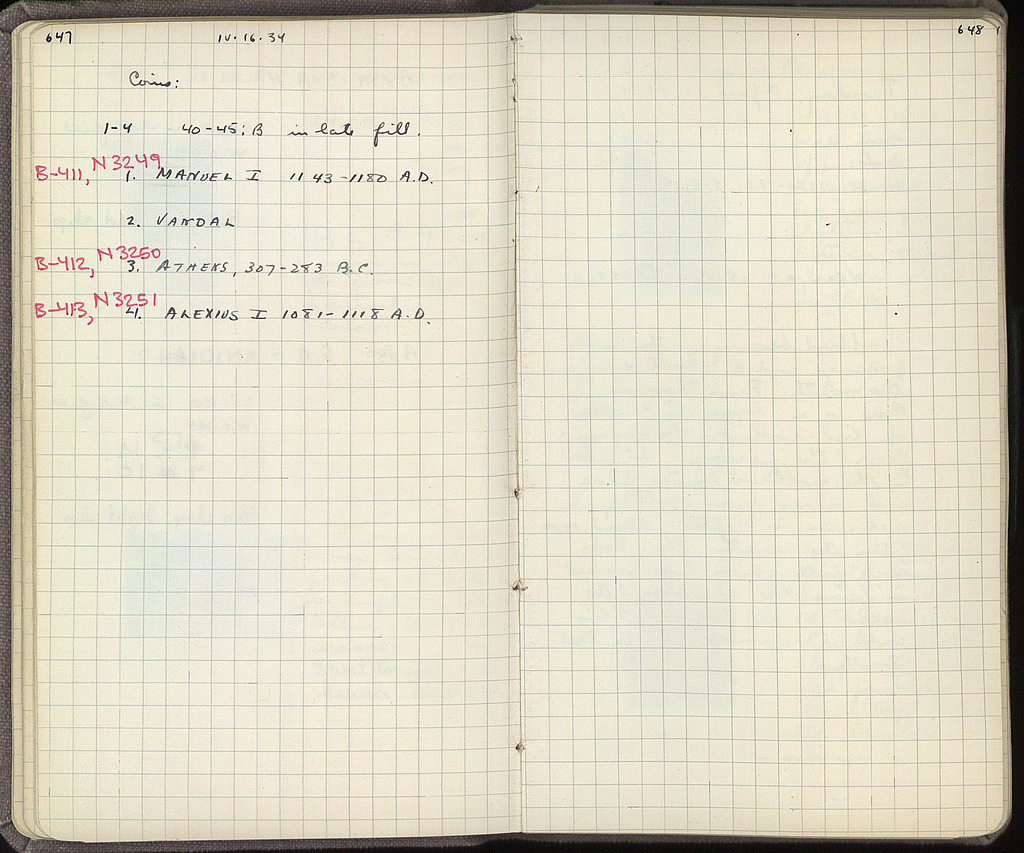 647 IV.16.34
Coins:
1-4 40-45:B in late fill.
B-411, N3249 1. MANUEL I 1143-1180 A.D.
2. VANDAL
B-412, N3250 3. ATHENS, 307-283 B.C.
B-413, N3251 4. ALEXIUS I 1081-1118 A.D.
648